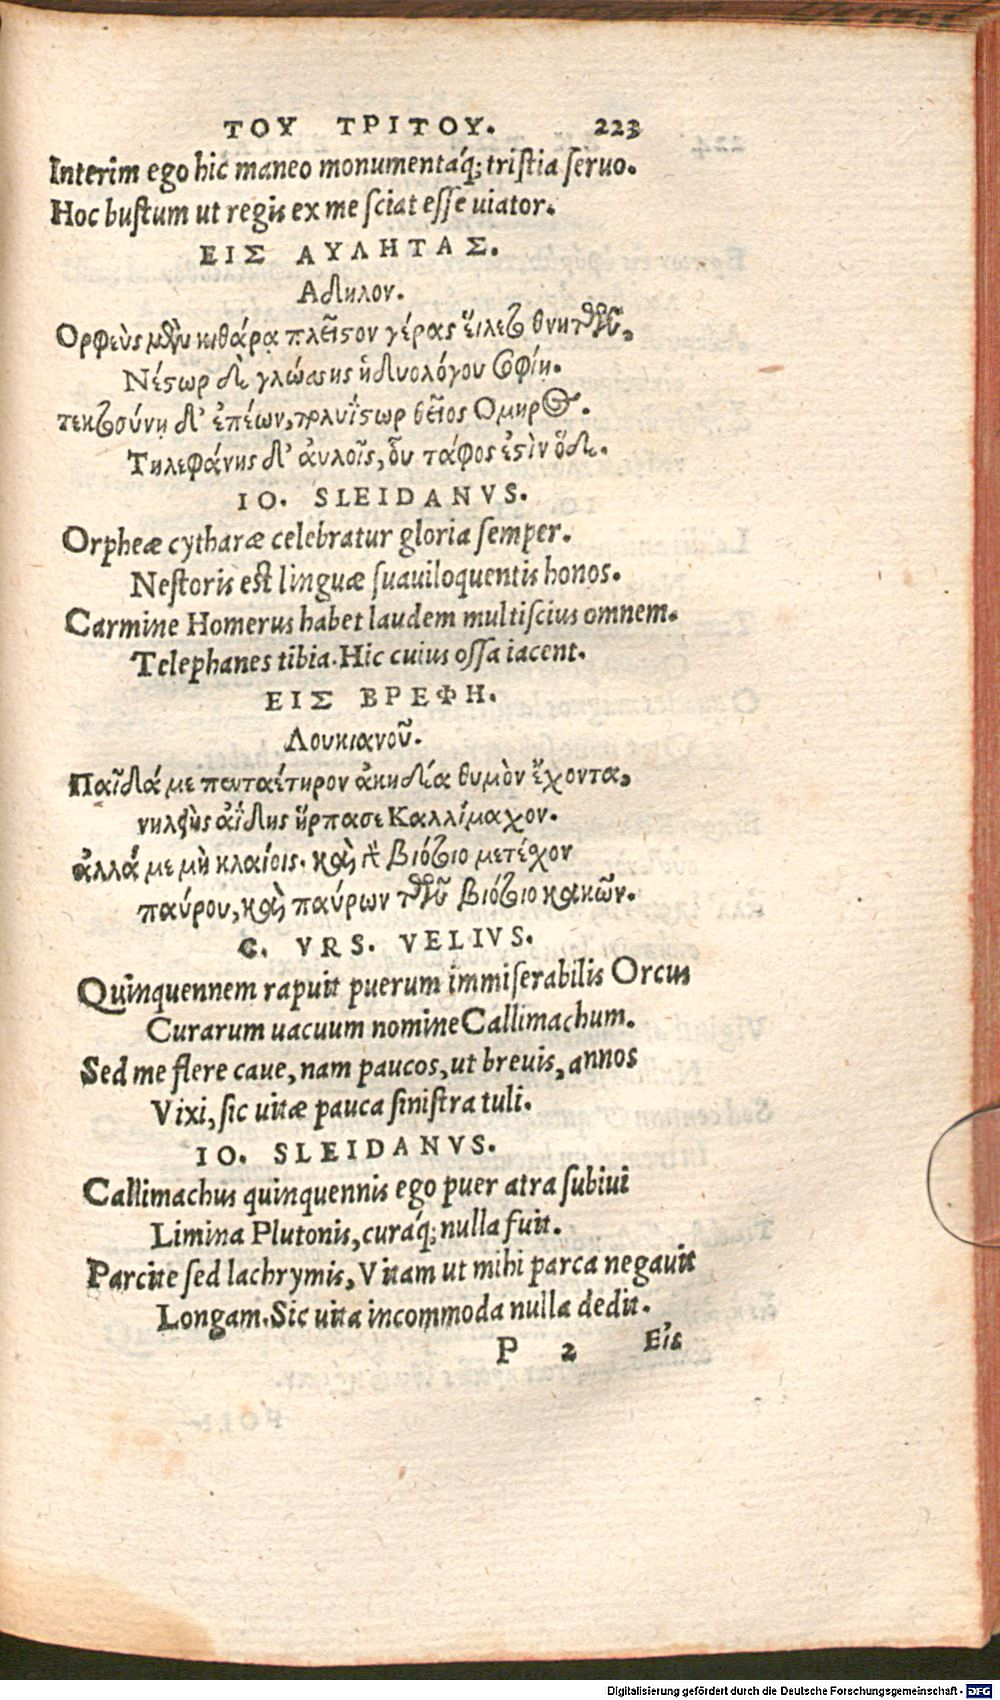 ΤΟΥ ΤΡΙΤΟΥ. 223
Interim ego hic maneo monumentáq; tristia seruo.
Hoc bustum ut regis ex me sciat esse uiator.
ΕΙΣ ΑΥΛΗΤΑΣ.
Αδηλον.
Ορφεὺς μὲν κιθάρᾳ πλεῖστον γέρας εἵλετο θνητῶν,
Νέστωρ δὲ γλώσσης ἡδυολόγου σοφίῃ.
τεκτοσύνῃ δ' ἐπέων, πολυΐστωρ θεῖος Ομηρος.
Τηλεφάνης δ' ἀυλοῖς, οὗ τάφος ἐστὶν ὅδε.
IO. SLEIDANVS.
Orpheæ cytharæ celebratur gloria semper.
Nestoris est linguæ suauiloquentis honos.
Carmine Homerus habet laudem multiscius omnem.
Telephanes tibia. Hic cuius ossa iacent.
ΕΙΣ ΒΡΕΦΗ.
Λουκιανοῦ.
Παῖδά με πενταέτηρον ἀκηδέα θυμὸν ἔχοντα,
νηλειὴς ἀΐδης ἥρπασε Καλλίμαχον.
ἀλλά με μὴ κλαίοις. καὶ γὰρ βιότοιο μετέχον
παύρου, καὶ παύρων τῶν βιότοιο κακῶν.
C. VRS. VELIVS.
Quinquennem rapuit puerum immiserabilis Orcus
Curarum uacuum nomine Callimachum.
Sed me flere caue, nam paucos, ut breuis, annos
Vixi, sic uitæ pauca sinistra tuli.
IO. SLEIDANVS.
Callimachus quinquennis ego puer atra subiui
Limina Plutonis, curáq; nulla fuit.
Parcite sed lachrymis, Vitam ut mihi parca negauit
Longam. Sic uita incommoda nulla dedit.
P 2 Εἰς
Digitalisierung gefördert durch die Deutsche Forschungsgemeinschaft - DFG